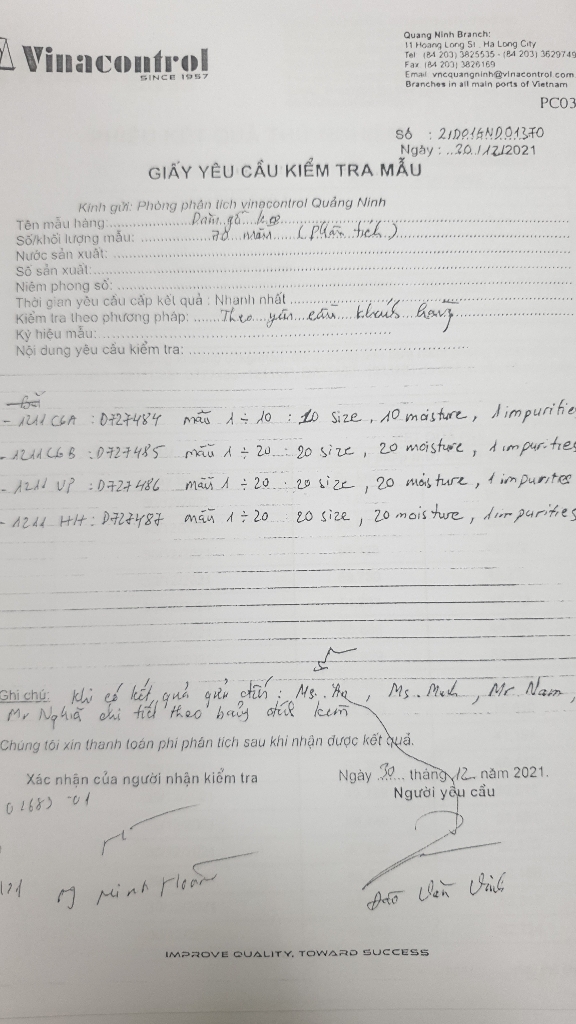 Vinacontrol
SINCE 1957
Quang Ninh Branch:
11 Hoang Long St. Ha Long City
Tel: (84 203) 3825535 - (84 203) 3629749
Fax (84 203) 3826169
Email vncquangninh@vinacontrol.com
Branches in all main ports of Vietnam
PC03
Số : 21D01GND01370
Ngày : 30/12/2021
GIẤY YÊU CẦU KIỂM TRA MẪU
Kính gửi: Phòng phân tích vinacontrol Quảng Ninh
Tên mẫu hàng: Dăm gỗ keo
Số/khối lượng mẫu: 70 mẫu (phân tích)
Nước sản xuất:
Số sản xuất:
Niêm phong số:
Thời gian yêu cầu cấp kết quả : Nhanh nhất
Kiểm tra theo phương pháp: Theo yêu cầu khách hàng
Ký hiệu mẫu:
Nội dung yêu cầu kiểm tra:
- 1211 CGA : D727484 mẫu 1 ÷ 10 : 10 size, 10 moisture, 1 impurities
- 1211 CGB : D727485 mẫu 1 ÷ 20 : 20 size, 20 moisture, 1 impurities
- 1211 VP : D727486 mẫu 1 ÷ 20 : 20 size, 20 moisture, 1 impurities
- 1211 HH : D727487 mẫu 1 ÷ 20 : 20 size, 20 moisture, 1 impurities
Ghi chú: Khi có kết quả gửi đến : Ms. , Ms. , Mr Nam,
Mr Nghĩa chi tiết theo bảng đính kèm
Chúng tôi xin thanh toán phí phân tích sau khi nhận được kết quả.
Xác nhận của người nhận kiểm tra
Ngày 30 tháng 12 năm 2021.
Người yêu cầu
02683-01
Minh Hoàn
Đào Văn Vinh
IMPROVE QUALITY, TOWARD SUCCESS